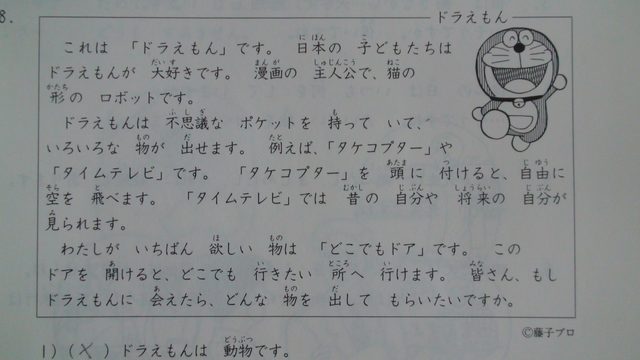 8.
ドラえもん
これは 「ドラえもん」です。 日本の 子どもたちは
ドラえもんが 大好きです。 漫画の 主人公で、猫の
形の ロボットです。
ドラえもんは 不思議な ポケットを 持って いて、
いろいろな 物が 出せます。 例えば、「タケコプター」や
「タイムテレビ」です。 「タケコプター」を 頭に 付けると、自由に
空を 飛べます。 「タイムテレビ」では 昔の 自分や 将来の 自分が
見られます。
わたしが いちばん 欲しい 物は 「どこでもドア」です。 この
ドアを 開けると、どこでも 行きたい 所へ 行けます。 皆さん、もし
ドラえもんに 会えたら、どんな 物を 出して もらいたいですか。
©藤子プロ
1) (×) ドラえもんは 動物です。